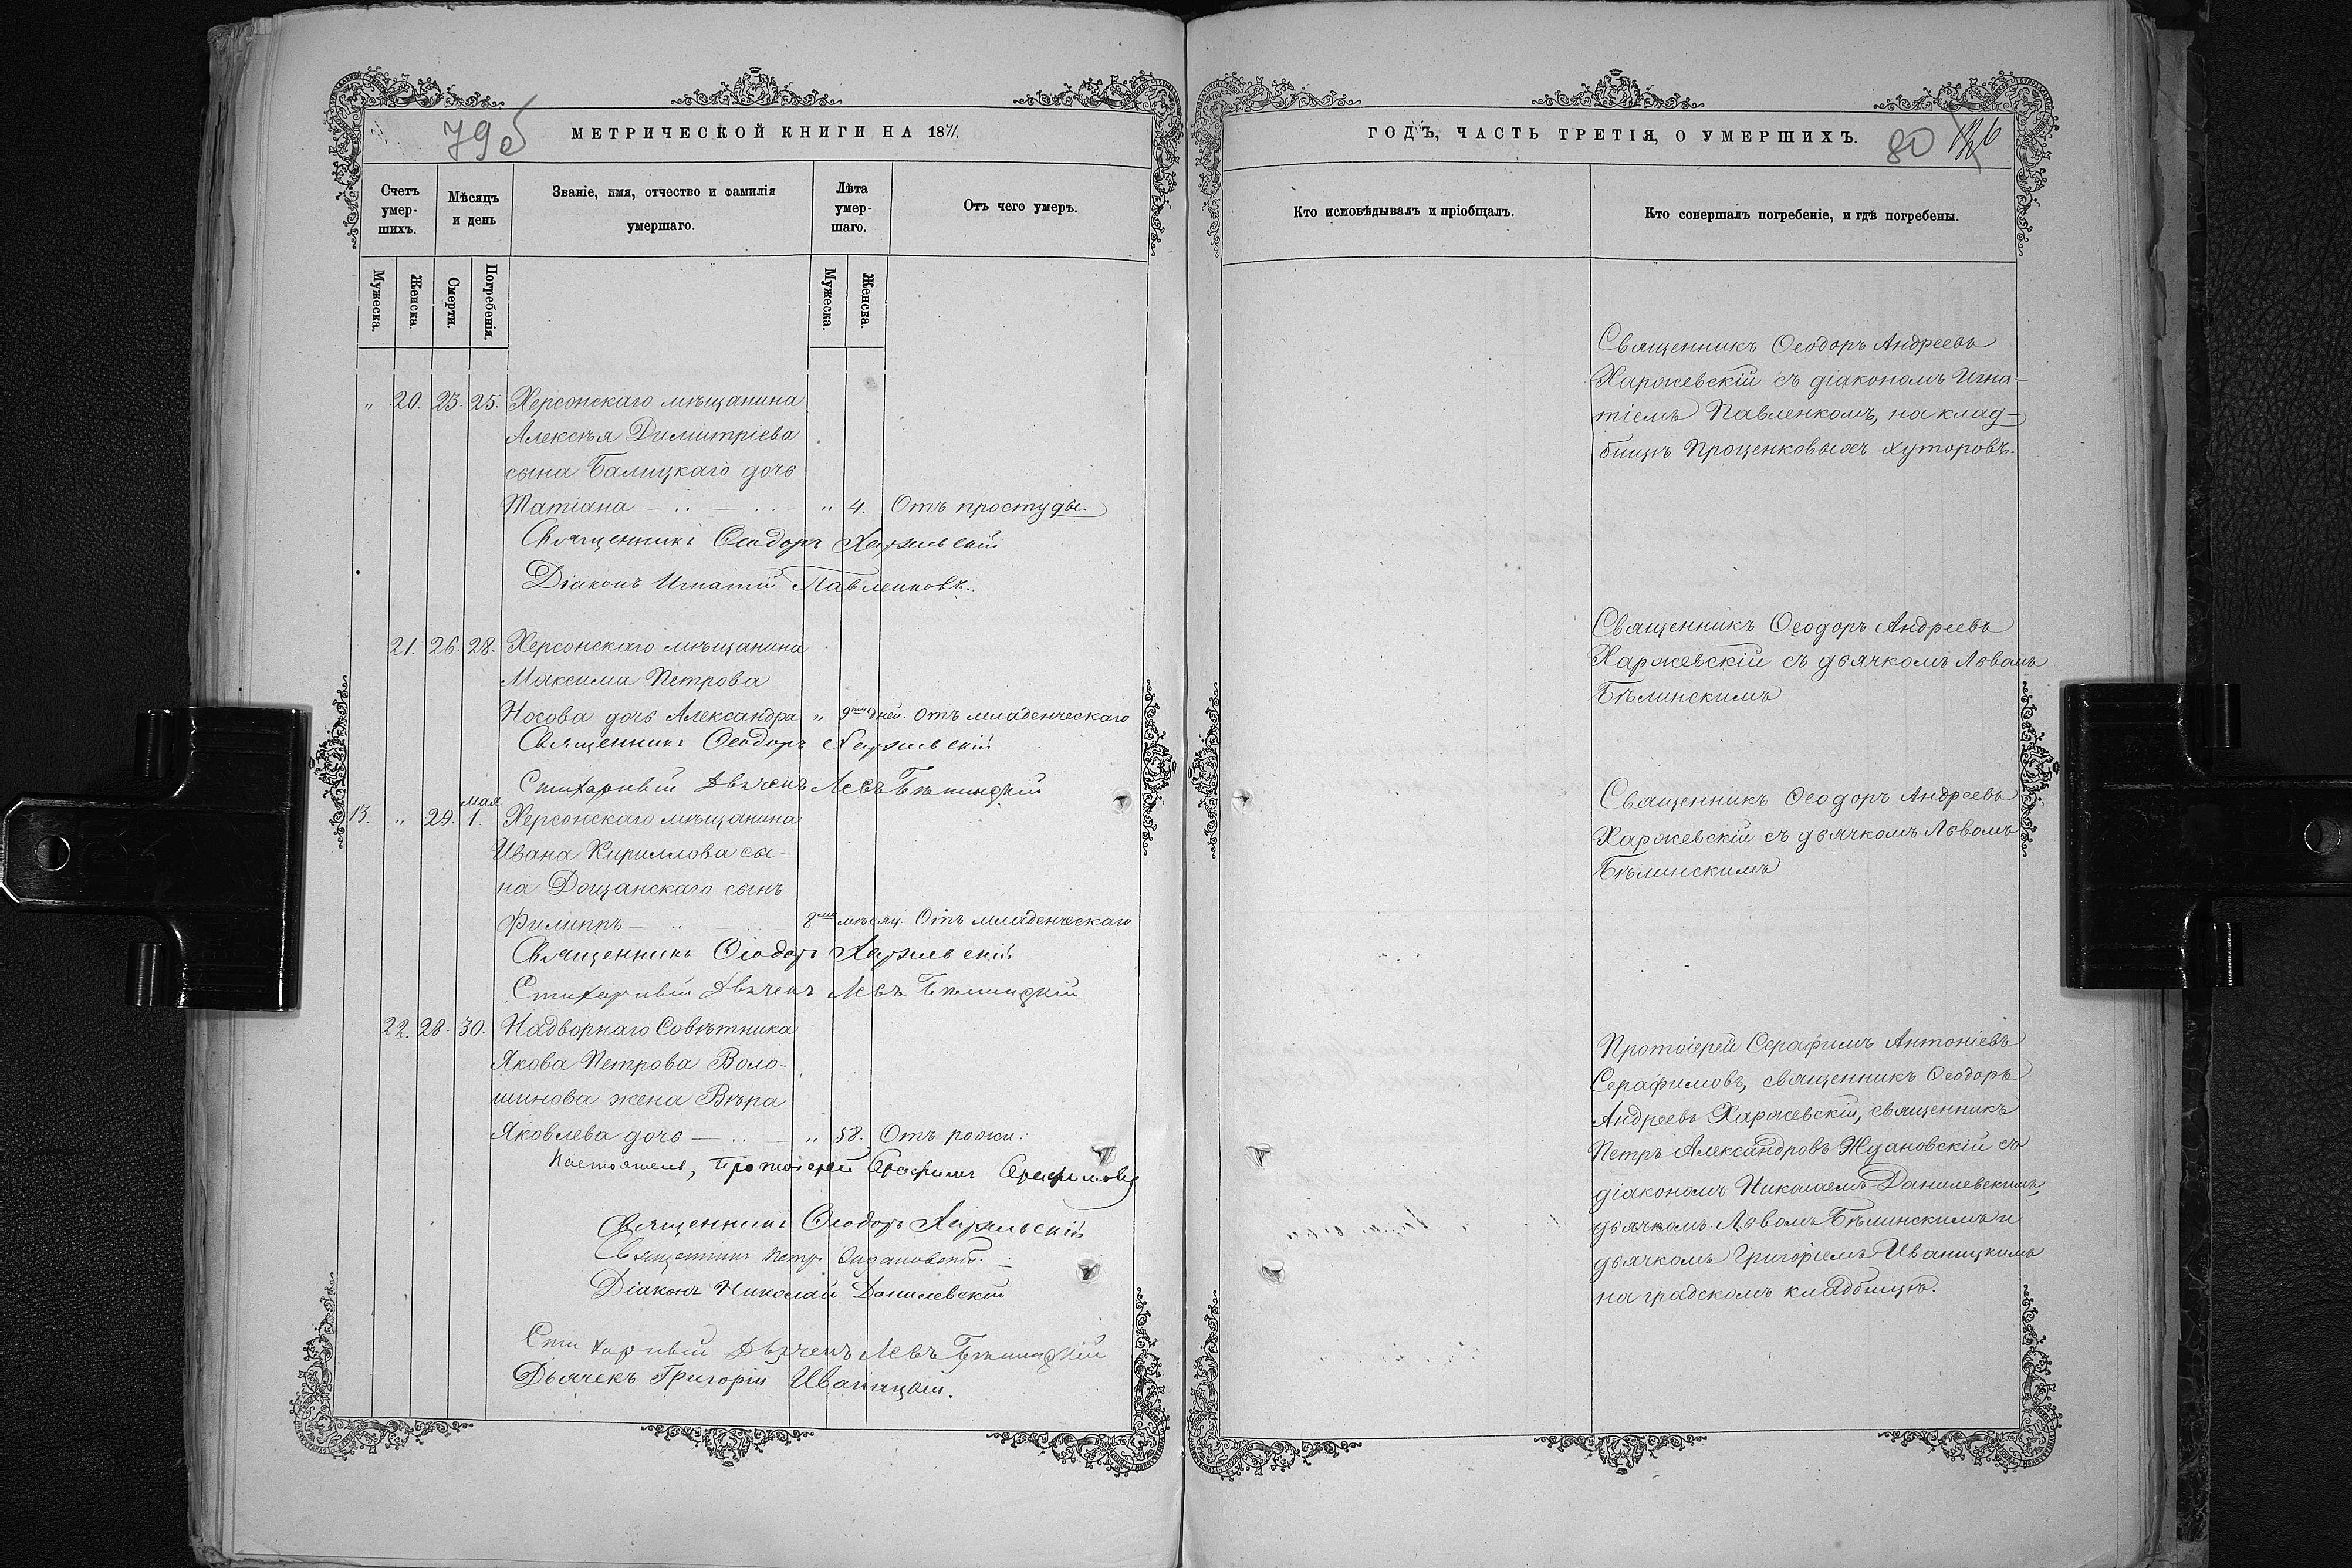 79б
МЕТРИЧЕСКОЙ КНИГИ НА 1871.
Счетъ умер-шихъ.
Мѣсяцъ и день
Званіе, имя, отчество и фамилія умершаго.
Лѣта умер-шаго.
Отъ чего умеръ.
Мужеска.
Женска.
Смерти.
Погребенія.
Мужеска.
Женска.
„ 20. 23. 25. Херсонскаго мѣщанина
Алексѣя Димитріева
сына Балицкаго дочь
Татіана — „ 4. Отъ простуды.
Священникъ Ѳеодоръ Харжевскій
Діаконъ Игнатій Павленковъ.
21. 26. 28. Херсонскаго мѣщанина
Максима Петрова
Носова дочь Александра „ 9ти дней. Отъ младенческаго
Священникъ Ѳеодоръ Харжевскій
Стихарный Дьячекъ Левъ Бѣлинскій
мая
13. „ 29. 1. Херсонскаго мѣщанина
Ивана Кириллова сы-
на Дощанскаго сынъ
Филиппъ — 8ми мѣсяц. Отъ младенческаго
Священникъ Ѳеодоръ Харжевскій
Стихарный Дьячекъ Левъ Бѣлинскій
22. 28. 30. Надворнаго Совѣтника
Якова Петрова Воло-
шинова жена Вѣра
Яковлева дочь — „ 58. Отъ рожи.
Настоятель, Протоіерей Серафимъ Серафимовъ
Священникъ Ѳеодоръ Харжевскій
Священникъ Петръ Ждановскій.
Діаконъ Николай Данилевскій
Стихарный Дьячекъ Левъ Бѣлинскій
Дьячекъ Григорій Иваницкій.
ГОДЪ, ЧАСТЬ ТРЕТІЯ, О УМЕРШИХЪ.
80
Кто исповѣдывалъ и пріобщалъ.
Кто совершалъ погребеніе, и гдѣ погребены.
Священникъ Ѳеодоръ Андреевъ
Харжевскій съ діакономъ Игна-
тіемъ Павленкомъ, на клад-
бищѣ Проценковыхъ хуторовъ.
Священникъ Ѳеодоръ Андреевъ
Харжевскій съ дьячкомъ Львомъ
Бѣлинскимъ
Священникъ Ѳеодоръ Андреевъ
Харжевскій съ дьячкомъ Львомъ
Бѣлинскимъ
Протоіерей Серафимъ Антоніевъ
Серафимовъ, священникъ Ѳеодоръ
Андреевъ Харжевскій, священникъ
Петръ Александровъ Ждановскій съ
діакономъ Николаемъ Данилевскимъ,
дьячкомъ Львомъ Бѣлинскимъ и
дьячкомъ Григоріемъ Иваницкимъ
на градскомъ кладбищѣ.